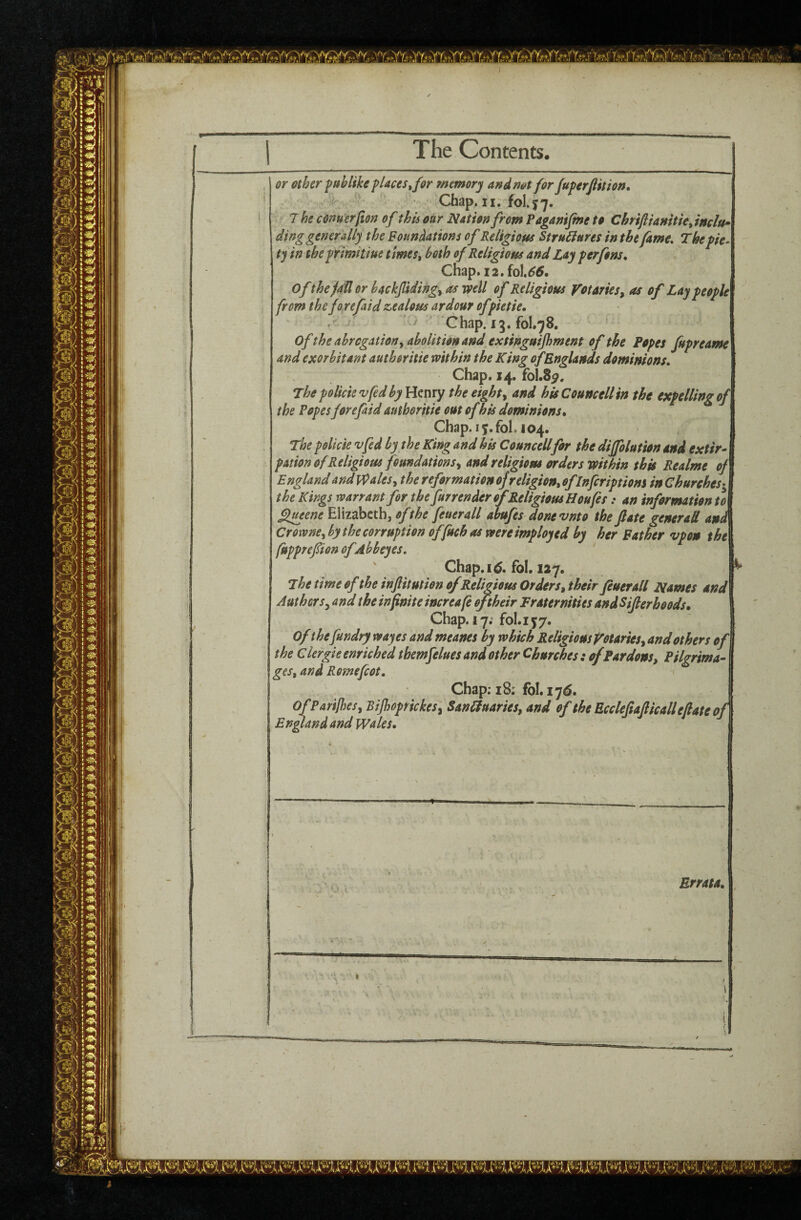 The Contents.
or other publike places, for memory and not for ſuperſtition.
Chap. 11. fol. 57.
The conuerſion of this our Nation from Paganiſme to Chriſtianitie, inclu-
ding generally the Foundations of Religious Structures in the ſame. The pie-
ty in the primitiue times, both of Religious and Lay perſons.
Chap. 12. fol. 66.
Of the fall or backſliding, as well of Religious Votaries, as of Lay people
from the foreſaid zealous ardour of pietie.
Chap. 13. fol. 78.
Of the abrogation, abolition and extinguiſhment of the Popes ſupreame
and exorbitant authoritie within the King of Englands dominions.
Chap. 14. fol. 89.
The policie vſed by Henry the eight, and his Councell in the expelling of
the Popes foreſaid authoritie out of his dominions.
Chap. 15. fol. 104.
The policie vſed by the King and his Councell for the diſſolution and extir-
pation of Religious foundations, and religious orders within this Realme of
England and Wales, the reformation of religion, of Inſcriptions in Churches;
the Kings warrant for the ſurrender of Religious Houſes: an information to
Queene Elizabeth, of the ſeuerall abuſes done vnto the ſtate generall and
Crowne, by the corruption of ſuch as were imployed by her Father vpon the
ſuppreſsion of Abbeyes.
Chap. 16. fol. 127.
The time of the inſtitution of Religious Orders, their ſeuerall Names and
Authors, and the infinite increaſe of their Fraternities and Siſterhoods.
Chap. 17. fol. 157.
Of the ſundry wayes and meanes by which Religious Votaries, and others of
the Clergie enriched themſelues and other Churches: of Pardons, Pilgrima-
ges, and Romeſcot.
Chap: 18: fol. 176.
Of Pariſhes, Biſhoprickes, Sanctuaries, and of the Eccleſiaſticall eſtate of
England and Wales.
Errata.